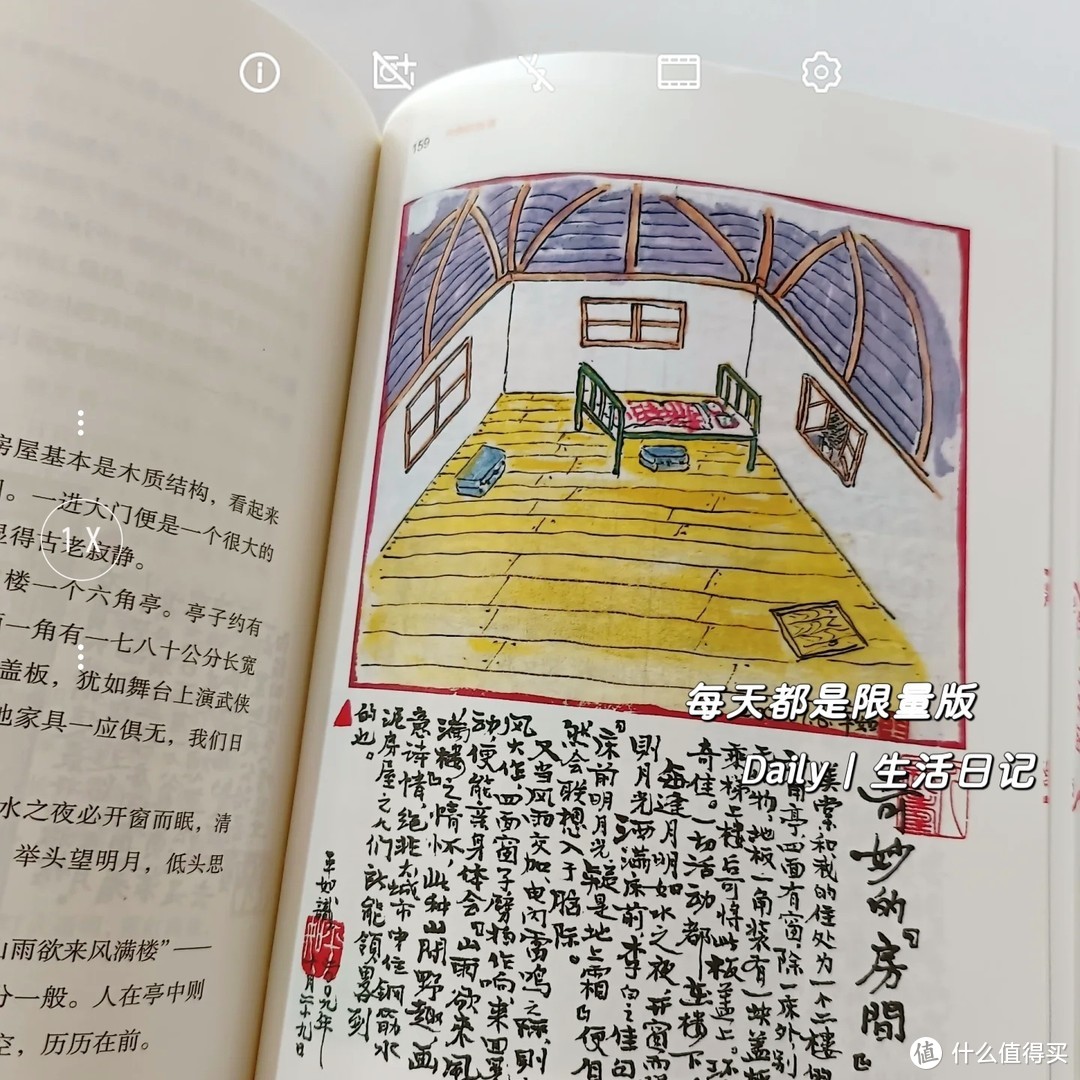 159
房屋基本是木质结构，看起来
。一进大门便是一个很大的
显得古老寂静。
楼一个六角亭。亭子约有
一角有一七八十公分长宽
盖板，犹如舞台上演武侠
家具一应俱无，我们日
水之夜必开窗而眠，清
举头望明月，低头思
山雨欲来风满楼”——
分一般。人在亭中则
空，历历在前。
奇妙的『房間』
美棠和我的住处为一个二楼的
角亭，四面有窗，除一床外别
无物，地板一角装有一块盖板
乘梯上楼后可将此板盖上。环
奇佳。一切活动都在楼下
每逢月明如水之夜开窗而
则月光洒满床前，李白之佳句
『床前明月光疑是地上霜』便自
然会联想入于脑际。
又当风雨交加，电闪雷鸣之际，则
风大作，四面窗子劈拍作响，来回晃
动，便能亲身体会『山雨欲来风
满楼』之情怀，此种山間野趣画
意诗情，绝非大城市中住钢筋水
泥房屋之人们所能領畧到
的也。
平如識
二〇〇九年
十月二十九日
1X
每天都是限量版
Daily | 生活日记
值 什么值得买